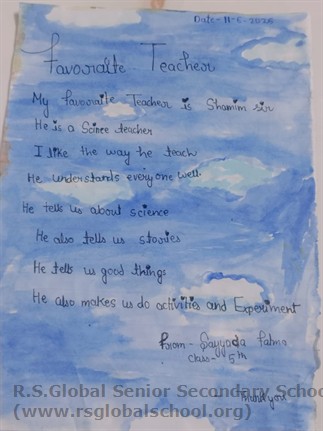 Date-11-6-2025
Favoraite Teacher
My favoraite Teacher is Shamim sir
He is a Scince teacher
I like the way he teach
He understands everyone well.
He tells us about science
He also tells us stories
He tells us good things
He also makes us do activities and Experiment
From - Sayyada Fatma
class- 5th
Thank you
R.S.Global Senior Secondary Schoo
(www.rsglobalschool.org)